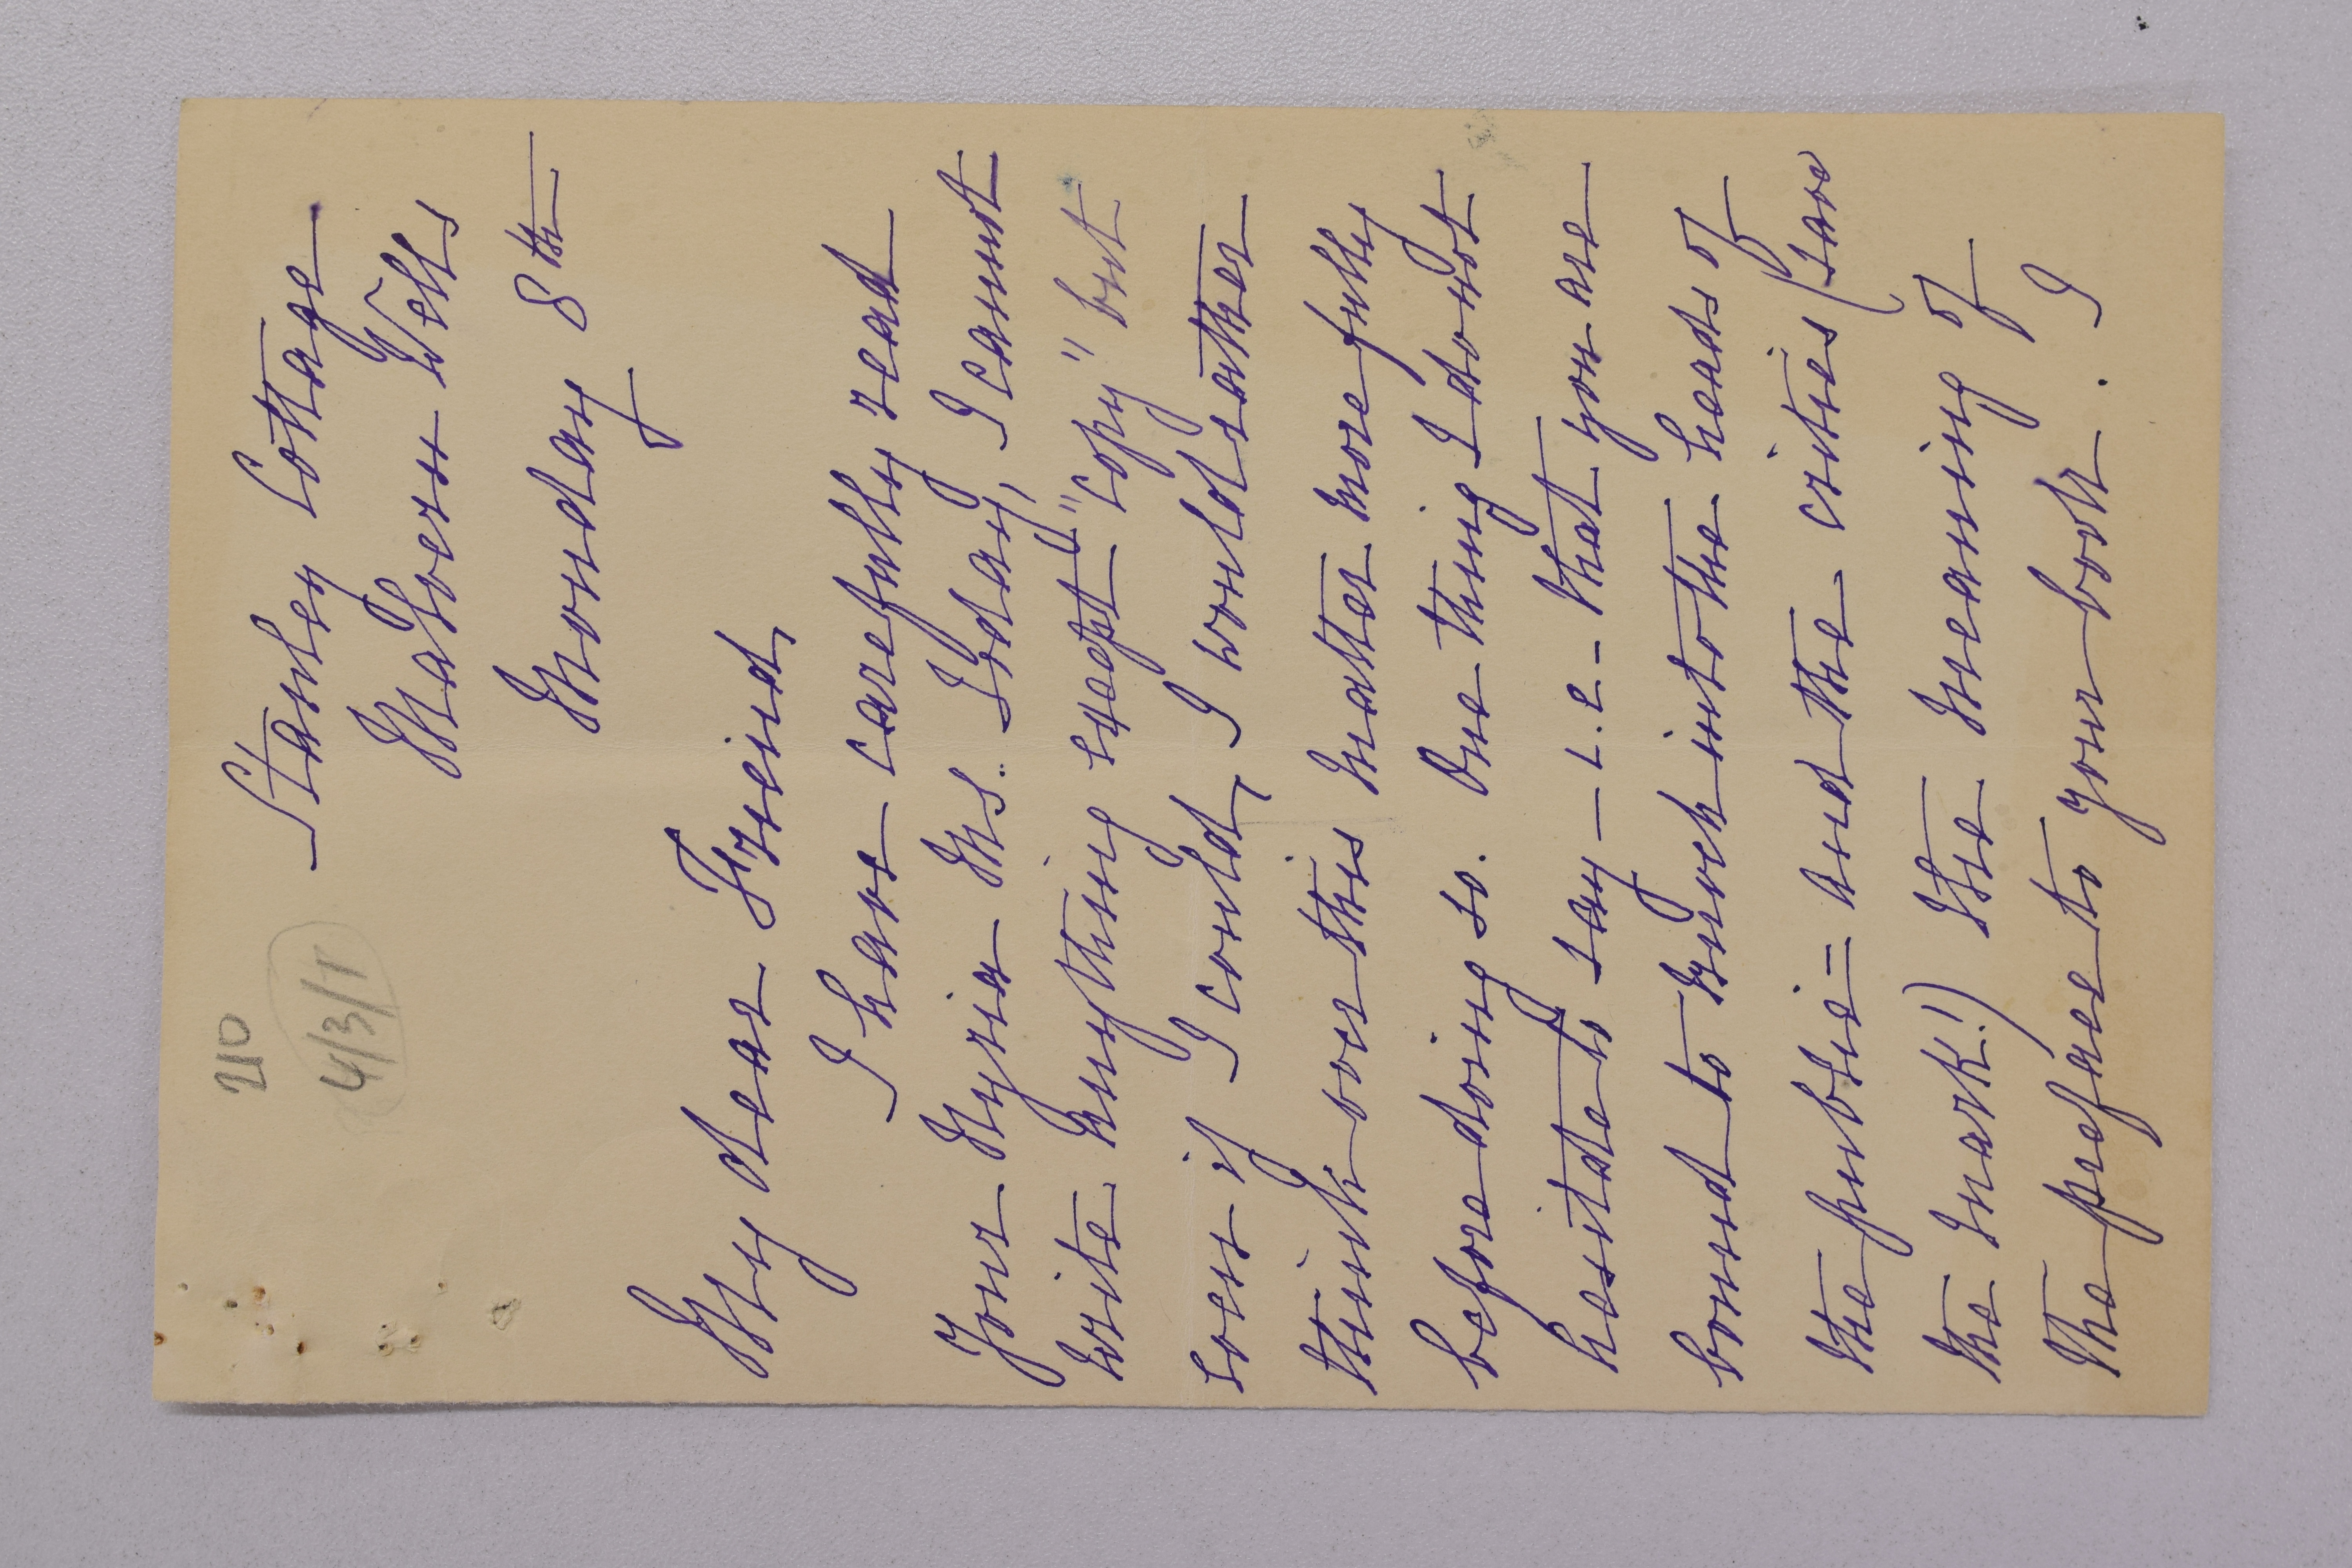 210
4/3/1
Stanley Cottage
Malvern Wells
Monday 8th
My dear Friend,
I have carefully read
your Myria Ms. Today, I cannot
write anything except "copy" but
even if I could, I would rather
think over this matter more fully
before doing so. One thing I do not
hesitate to say – i.e. that you are
bound to knock into the heads of
the public = and the critics (save
the mark!) the meaning of
the preface to your book. I